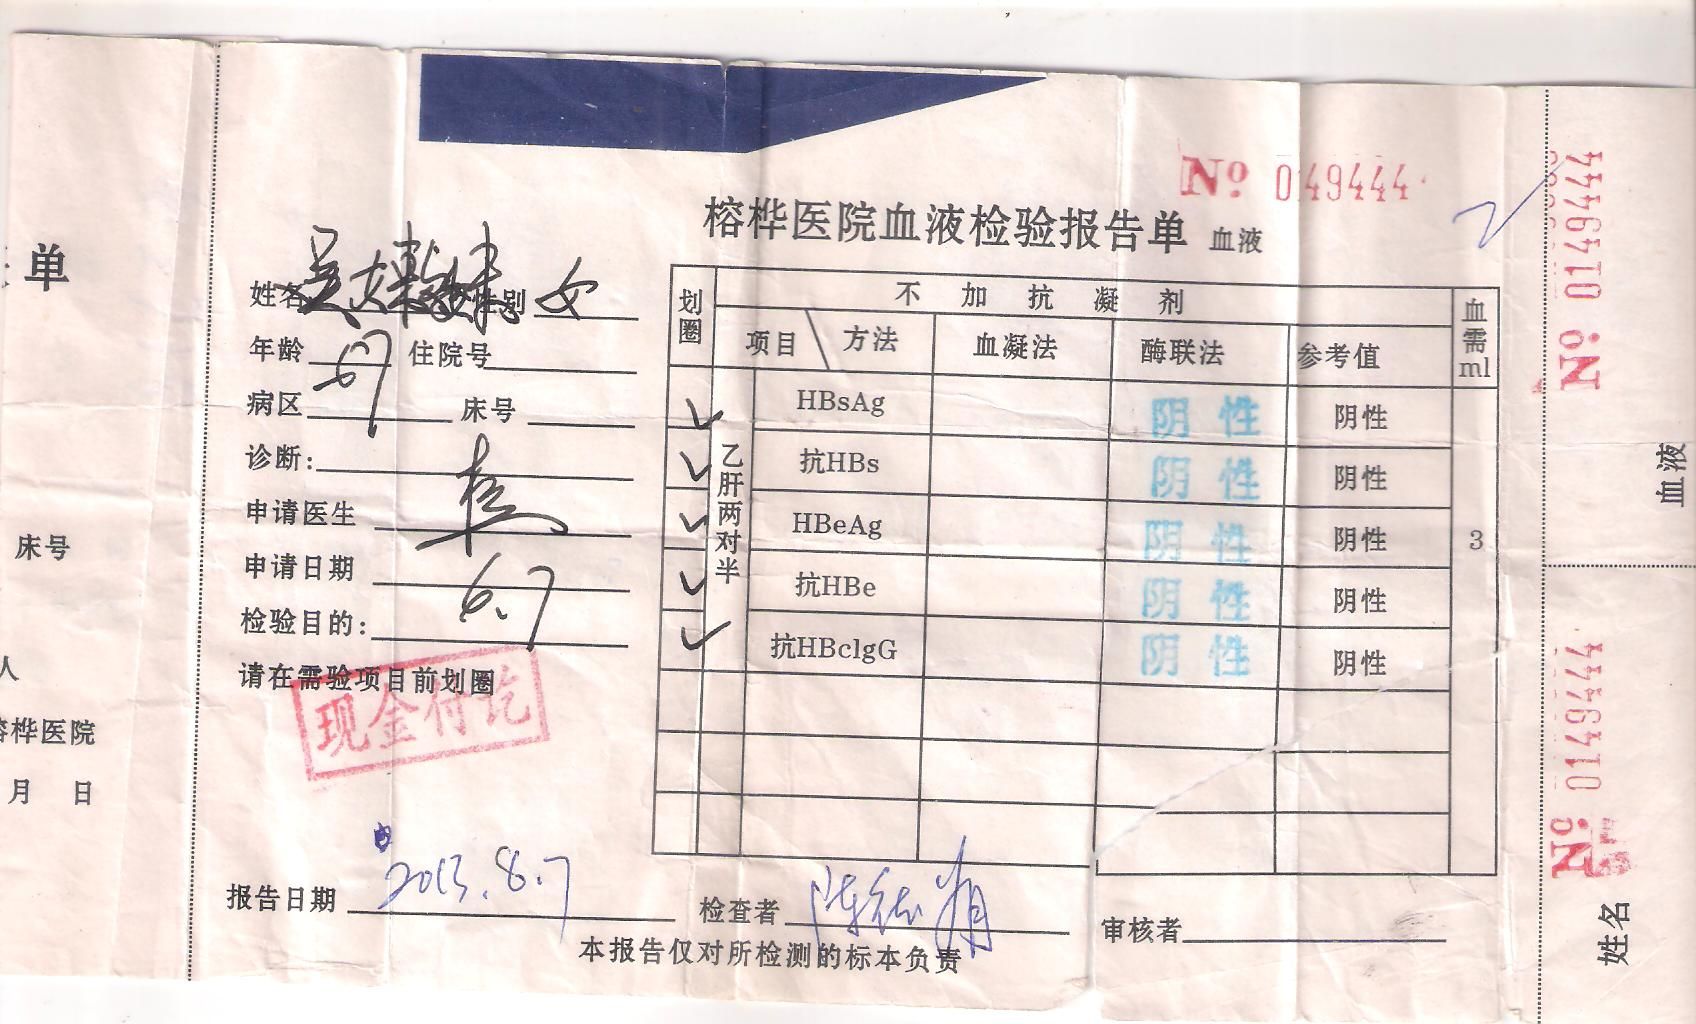 单
床号
人
桦医院
月 日
No 049444
榕桦医院血液检验报告单 血液
姓名 吴 性别 女
年龄 67 住院号
病区 床号
诊断:
申请医生
申请日期 6.7
检验目的:
请在需验项目前划圈
现金付讫
划圈 不加抗凝剂 血需ml
项目 方法 血凝法 酶联法 参考值
乙肝两对半
✓ HBsAg 阴性 阴性
✓ 抗HBs 阴性 阴性
✓ HBeAg 阴性 阴性 3
✓ 抗HBe 阴性 阴性
✓ 抗HBclgG 阴性 阴性
报告日期 2013.8.7 检查者 陈 审核者
本报告仅对所检测的标本负责
No 0149444
血液
No 0149444
姓名